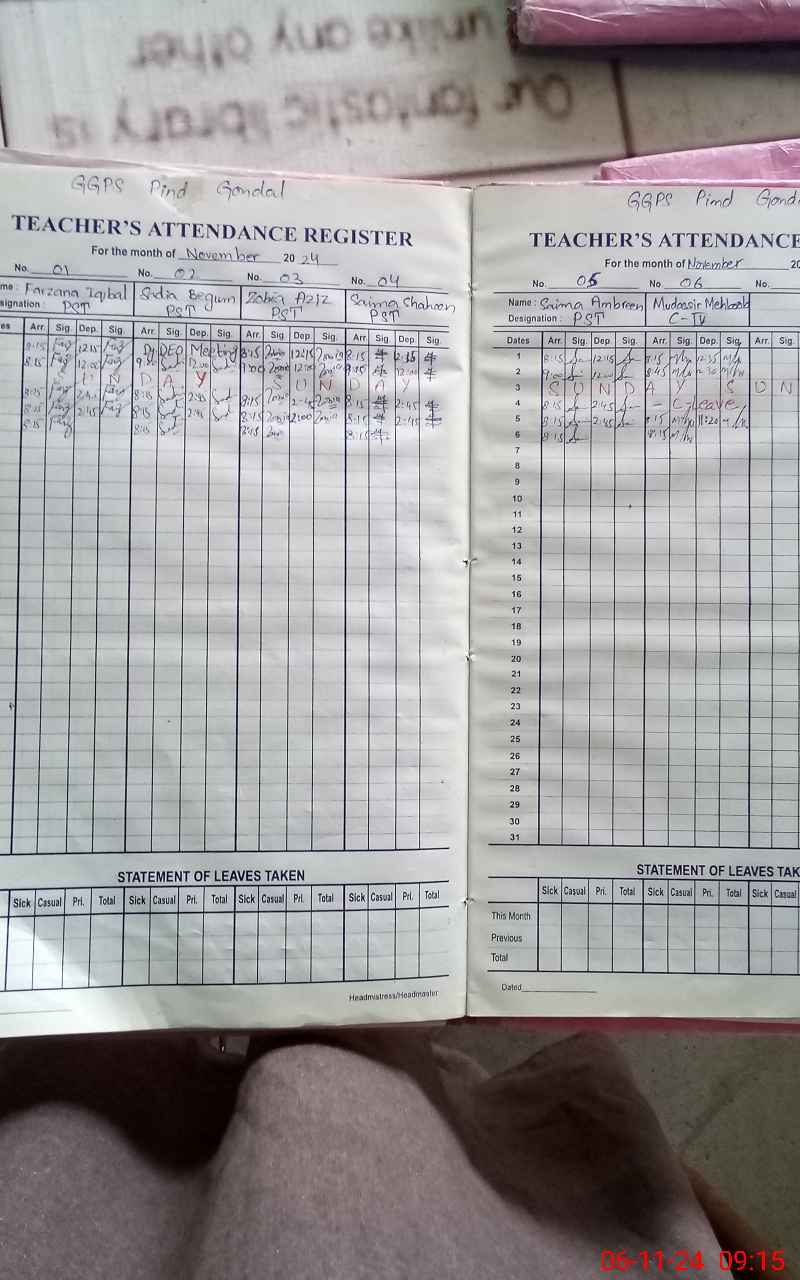 Our fantastic library is
unlike any other
GGPS Pind Gondal
TEACHER'S ATTENDANCE REGISTER
For the month of November 2024
No. 01 No. 02 No. 03 No. 04
me: Farzana Iqbal Sadia Begum Zobia Aziz Saima Shaheen
signation: PST PST PST PST
es Arr. Sig. Dep. Sig. Arr. Sig. Dep. Sig. Arr. Sig. Dep. Sig. Arr. Sig. Dep. Sig.
8:15 12:15 DEO Meeting 8:15 12:15 8:15
8:15 12:00 12:00 9:00 12:00 12:00
U N D A Y S U N D A Y
8:15 8:15 2:45 8:15 8:15 2:45
8:15 2:45 8:15 2:45 8:15 8:15 2:45
8:15 8:15 8:15 8:15
STATEMENT OF LEAVES TAKEN
Sick Casual Pri. Total Sick Casual Pri. Total Sick Casual Pri. Total Sick Casual Pri. Total
Headmistress/Headmaster
GGPS Pind Gonda
TEACHER'S ATTENDANCE
For the month of November 20
No. 05 No 06 No.
Name: Saima Ambreen Mudassir Mehboob
Designation: PST C-IV
Dates Arr. Sig. Dep. Sig. Arr. Sig. Dep. Sig. Arr. Sig.
1 8:15 12:15 8:15 12:35
2 9:00 12:00 8:45
3 S U N D A Y S U N
4 8:15 2:45 - C-Leave
5 8:15 2:45 8:15
6 8:15 8:15
7
8
9
10
11
12
13
14
15
16
17
18
19
20
21
22
23
24
25
26
27
28
29
30
31
STATEMENT OF LEAVES TAK
Sick Casual Pri. Total Sick Casual Pri. Total Sick Casual
This Month
Previous
Total
Dated
06-11-24 09:15